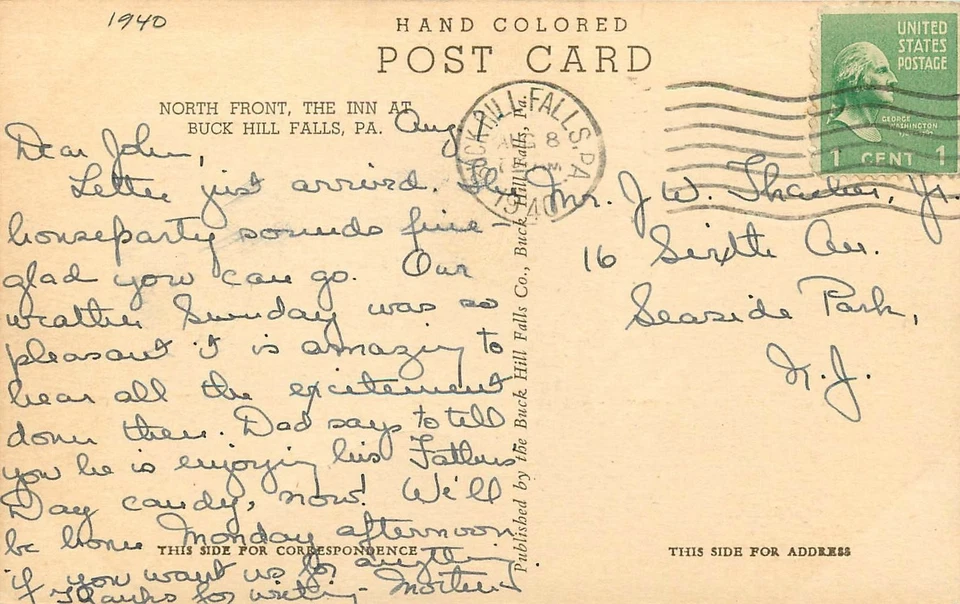 1940
HAND COLORED
POST CARD
NORTH FRONT, THE INN AT
BUCK HILL FALLS, PA.
Aug. 7
Dear John,
Letter just arrived. The
houseparty sounds fine -
glad you can go. Our
weather Sunday was so
pleasant it is amazing to
hear all the excitement
down there. Dad says to tell
you he is enjoying his Fathers
Day candy, now! We'll
be home Monday afternoon
if you want us for anything.
Thanks for writing - Mother
THIS SIDE FOR CORRESPONDENCE
Published by the Buck Hill Falls Co., Buck Hill Falls, Pa.
BUCK HILL FALLS, PA.
AUG 8
1940
UNITED
STATES
POSTAGE
GEORGE
WASHINGTON
1 CENT 1
Mr. J W. Thacher, Jr.
16 Sixth Av.
Seaside Park,
N.J.
THIS SIDE FOR ADDRESS